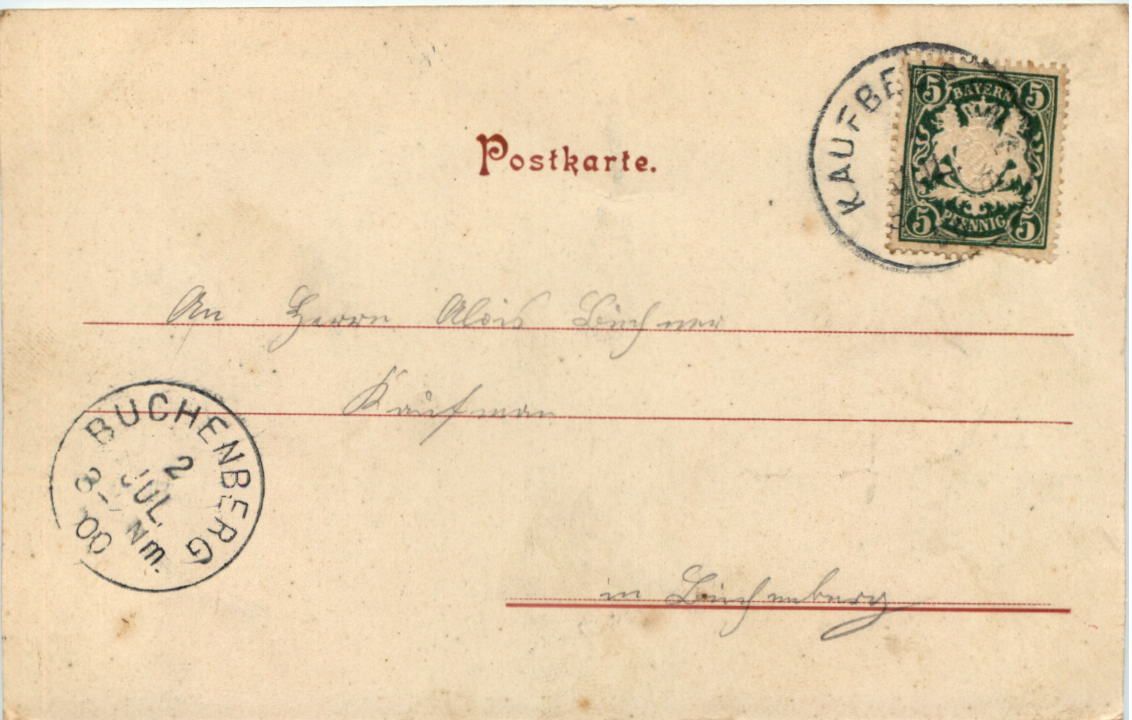 Postkarte.
KAUFBE
5 BAYERN 5
5 PFENNIG 5
An Herrn Alois Büchner
Kaufman
BUCHENBERG
2
JUL.
8
Nm.
00
in Buchenberg